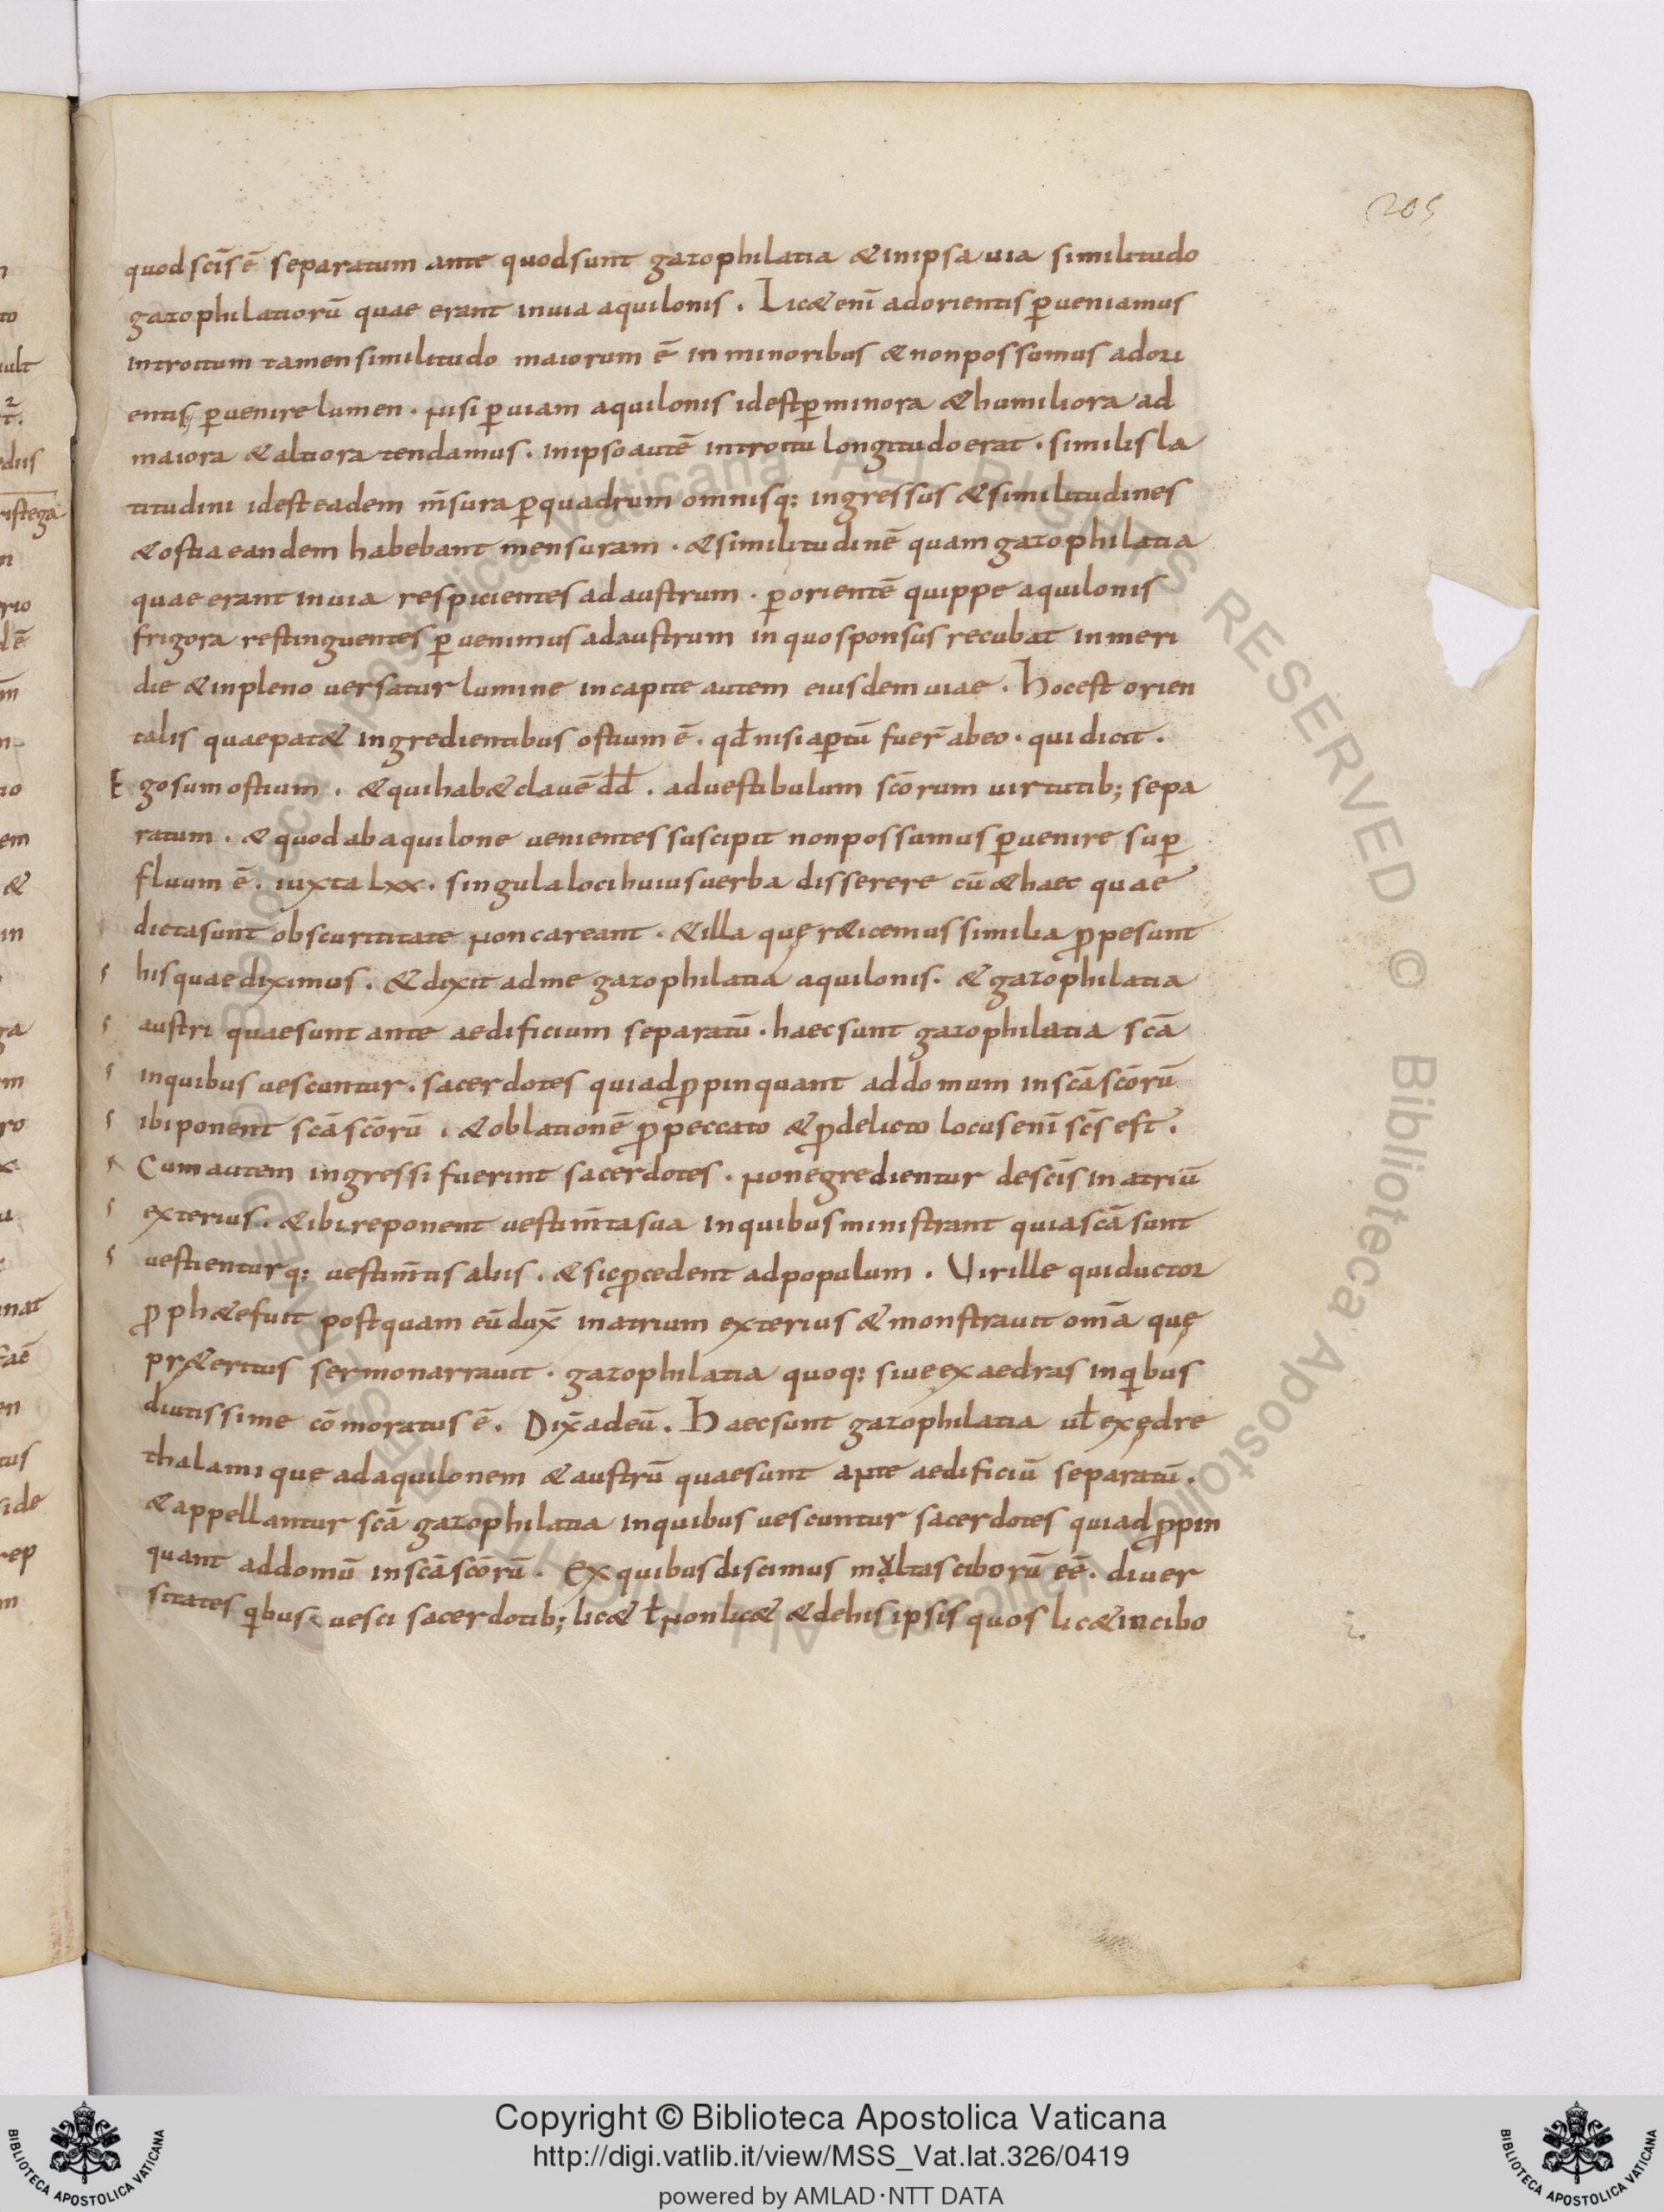 205
quod scīs ē separatum ante quod sunt gazophilatia & in ipsa uia similitudo
gazophilatiorū quae erant in uia aquilonis . Lic& enī ad orientis ꝑueniamus
introitum tamen similitudo maiorum ē in minoribus & non possumus ad ori
entis ꝑuenire lumen . nisi ꝑ uiam aquilonis id est ꝑ minora & humiliora ad
maiora & altiora tendamus . in ipso autē introitu longitudo erat . similis la
titudini id est eadem m̄sura ꝑ quadrum omnisq: ingressus & similitudines
& ostia eandem habebant mensuram . & similitudinē quam gazophilatia
quae erant in uia respicientes ad austrum . ꝑ orientē quippe aquilonis
frigora restinguentes ꝑuenimus ad austrum in quo sponsus recubat in meri
die & in pleno uersatur lumine in capite autem eiusdem uiae . Hoc est orien
talis quae pat& ingredientibus ostium ē . qđ nisi aꝑtū fuer̄ ab eo . qui dicit .
Ego sum ostium . & qui hab& clauē đđ . ad uestibulum scōrum uirtutib; sepa
ratum . & quod ab aquilone uenientes suscipit non possumus ꝑuenire suꝑ
fluum ē . iuxta lxx . singula loci huius uerba disserere cū & haec quae
dicta sunt obscurititate non careant . & illa quę r&icemus similia ꝓpe sunt
his quae diximus . & dixit ad me gazophilatia aquilonis . & gazophilatia
austri quae sunt ante aedificium separatū . haec sunt gazophilatia scā
in quibus uescuntur . sacerdotes qui adꝓpinquant ad domum in scā scōrū
ibi ponent scā scōrū . & oblationē ꝓ peccato & ꝓ delicto locus enī scs̄ est .
Cum autem ingressi fuerint sacerdotes . non egredientur de scīs in atriū
exterius . & ibi reponent uestim̄ta sua in quibus ministrant quia scā sunt
uestienturq: uestim̄tis aliis . & sic ꝓcedent ad populum . Vir ille qui ductor
ꝓph&e fuit postquam eū dux̄ in atrium exterius & monstrauit om̄a quę
pr&eritus sermo narrauit . gazophilatia quoq: siue exaedras in qibus
diutissime cōmoratus ē . Dix̄ ad eū . Haec sunt gazophilatia ut̄ exędre
thalami quę ad aquilonem & austrū quae sunt ante aedificiū separatū .
& appellantur scā gazophilatia in quibus uescuntur sacerdotes qui adꝓpin
quant ad domū in scā scōrū . Ex quibus discimus multas ciborū eē . diuer
sitates qibus uesci sacerdotib; lic& ł non lic& & de his ipsis quos lic& in cibo
Copyright © Biblioteca Apostolica Vaticana
http://digi.vatlib.it/view/MSS_Vat.lat.326/0419
powered by AMLAD·NTT DATA